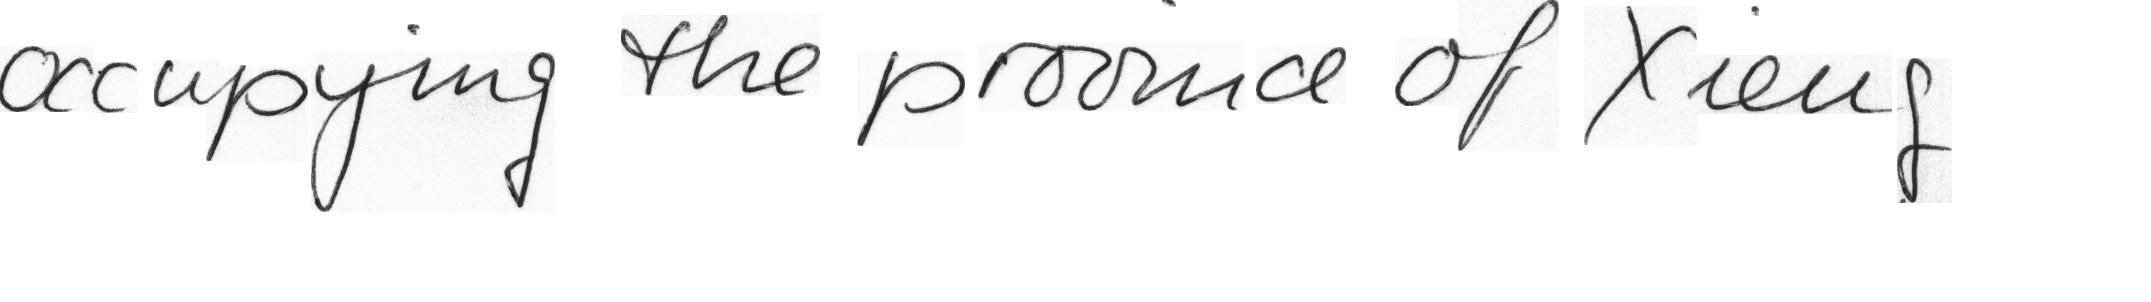 occupying the province of Xieng